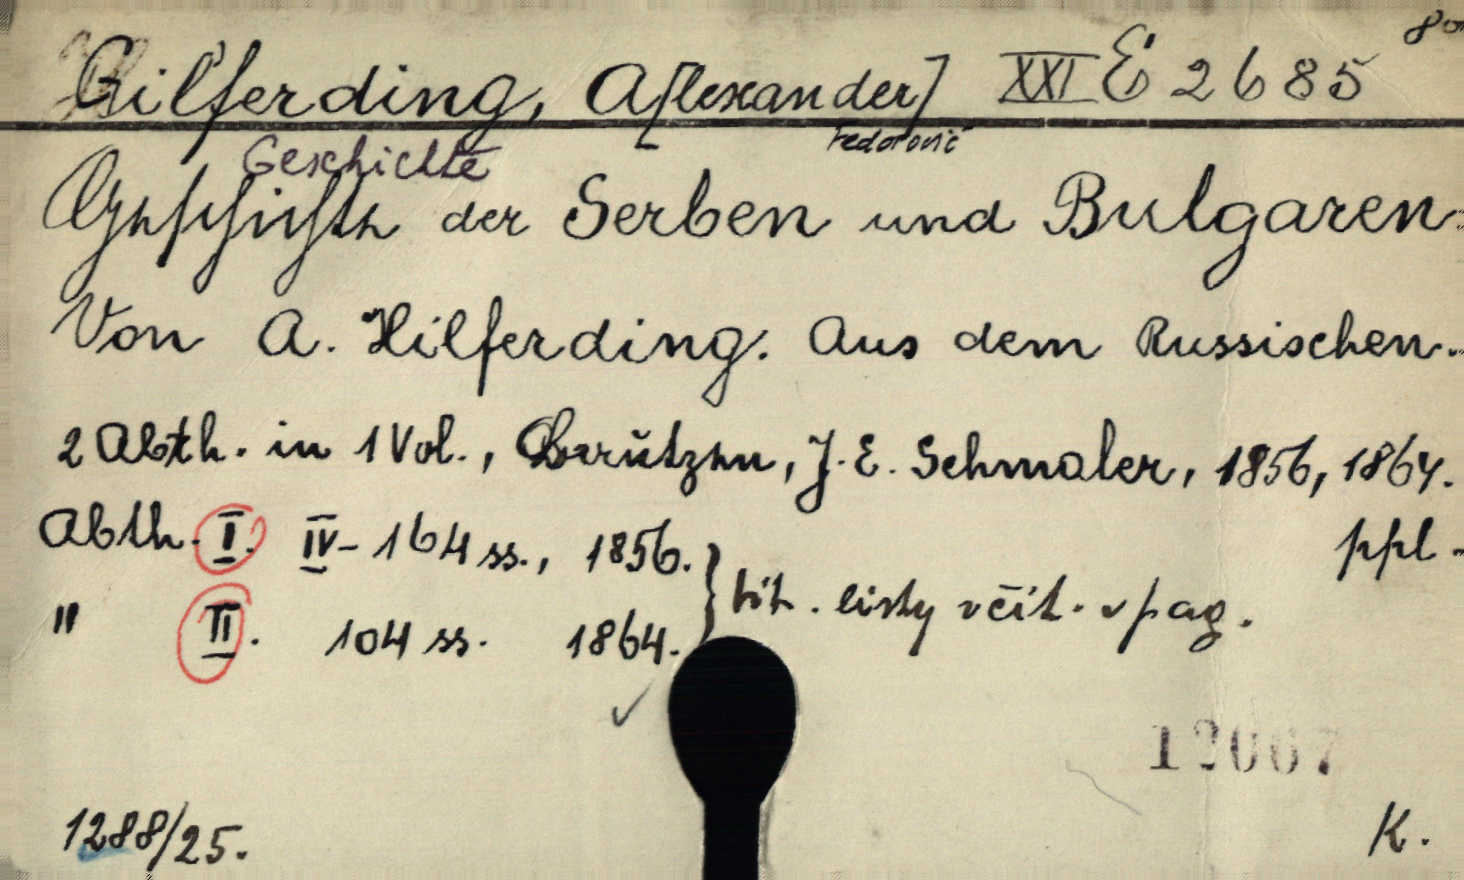 Gil'ferding, A[lexander] XXI E 2685 8°
Fedorovič
Geschichte
Geschichte der Serben und Bulgaren.
Von A. Hilferding. Aus dem Russischen.
2 Abth. in 1 Vol., Bautzen, J. E. Schmaler, 1856, 1864.
Abth. I. IV-164 ss., 1856. ppl.
" II. 104 ss. 1864. } tit. listy včít. v pag.
12067
1288/25. K.